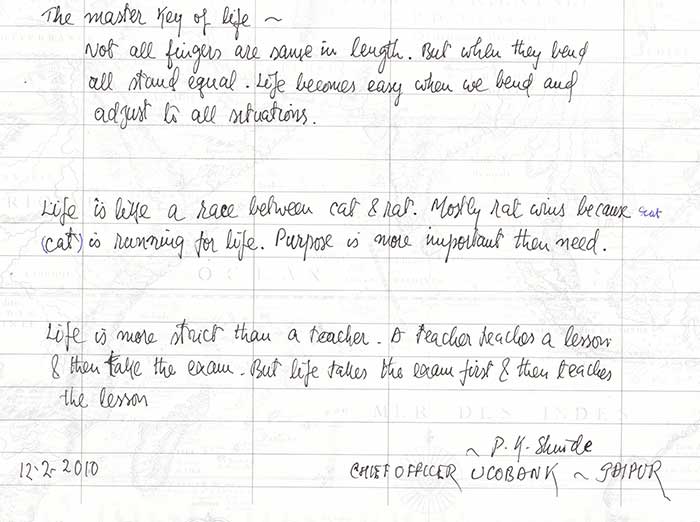 The master Key of life ~
Not all fingers are same in length. But when they bend
all stand equal. Life becomes easy when we bend and
adjust to all situations.
Life is like a race between cat & rat. Mostly rat wins because rat
(cat) is running for life. Purpose is more important then need.
Life is more strict than a teacher. A teacher teaches a lesson
& then take the exam. But life takes the exam first & then teaches
the lesson
MER DES INDES
~ P. K. 
12-2-2010 CHIEF OFFICER UCOBANK ~ JAIPUR